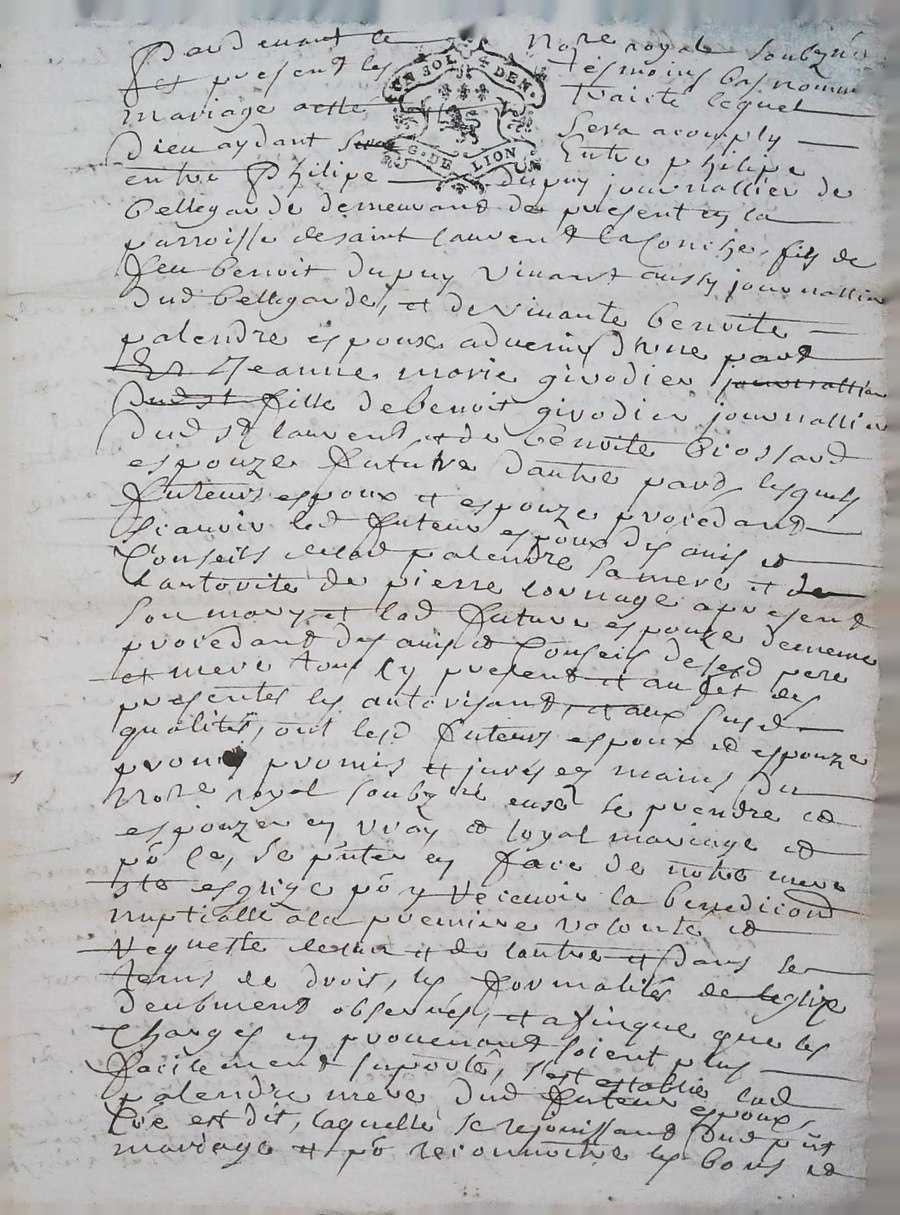 Pardevant le Nore royal soubzné
fet present les tesmoins bas nommés
UN SOL 4 DEN.
G. DE LION
mariage a esté traicté lequel
Dieu aydant sera acomply
Entre philipe
entre Philipe dupuy journallier de
bellegarde demeurand de present en la
parroisse de saint laurend la Conche, filz de
feu benoit dupuy vivant aussy journallier
dud bellegarde, et de vivante benoite
palendre espoux advenir d'hune pard
Et Jeanne marie girodier journallier
Dud st fille de benoit girodier journallier
Dud st laurend et de benoite brossard
espouze future d'autre pard, lesquels
futeurs espoux et espouze procedand
scavoir led futeur espoux des avis et
Conseils de lad palendre sa mere et de
l'autorité de pierre apresend
son mary, et lad future espouze demesme
procedand des avis et Conseils de sesd pere
et mere tous icy present et au fet des
presentes les autorisant, et aux susd
qualités, ont lesd futeurs espoux et espouze
promis promis et jurés es mains du
Nore royal soubzné se prendre et
espouzer en vray et loyal mariage et
po le, se pnter en face de notre mere
ste esglize po y recevoir la benedicond
nuptialle a la premiere volonté et
requeste de lun et de lautre et dans le
tems de droit, les formalités de leglize
deubment observés, et afinque que les
Charges en provenant soient plus
facilement suportés, s'est establie lad
palendre mere dud futeur espoux,
est dit, laquelle se rejouissand dud pnt
mariage et po reconnoitre les bons et